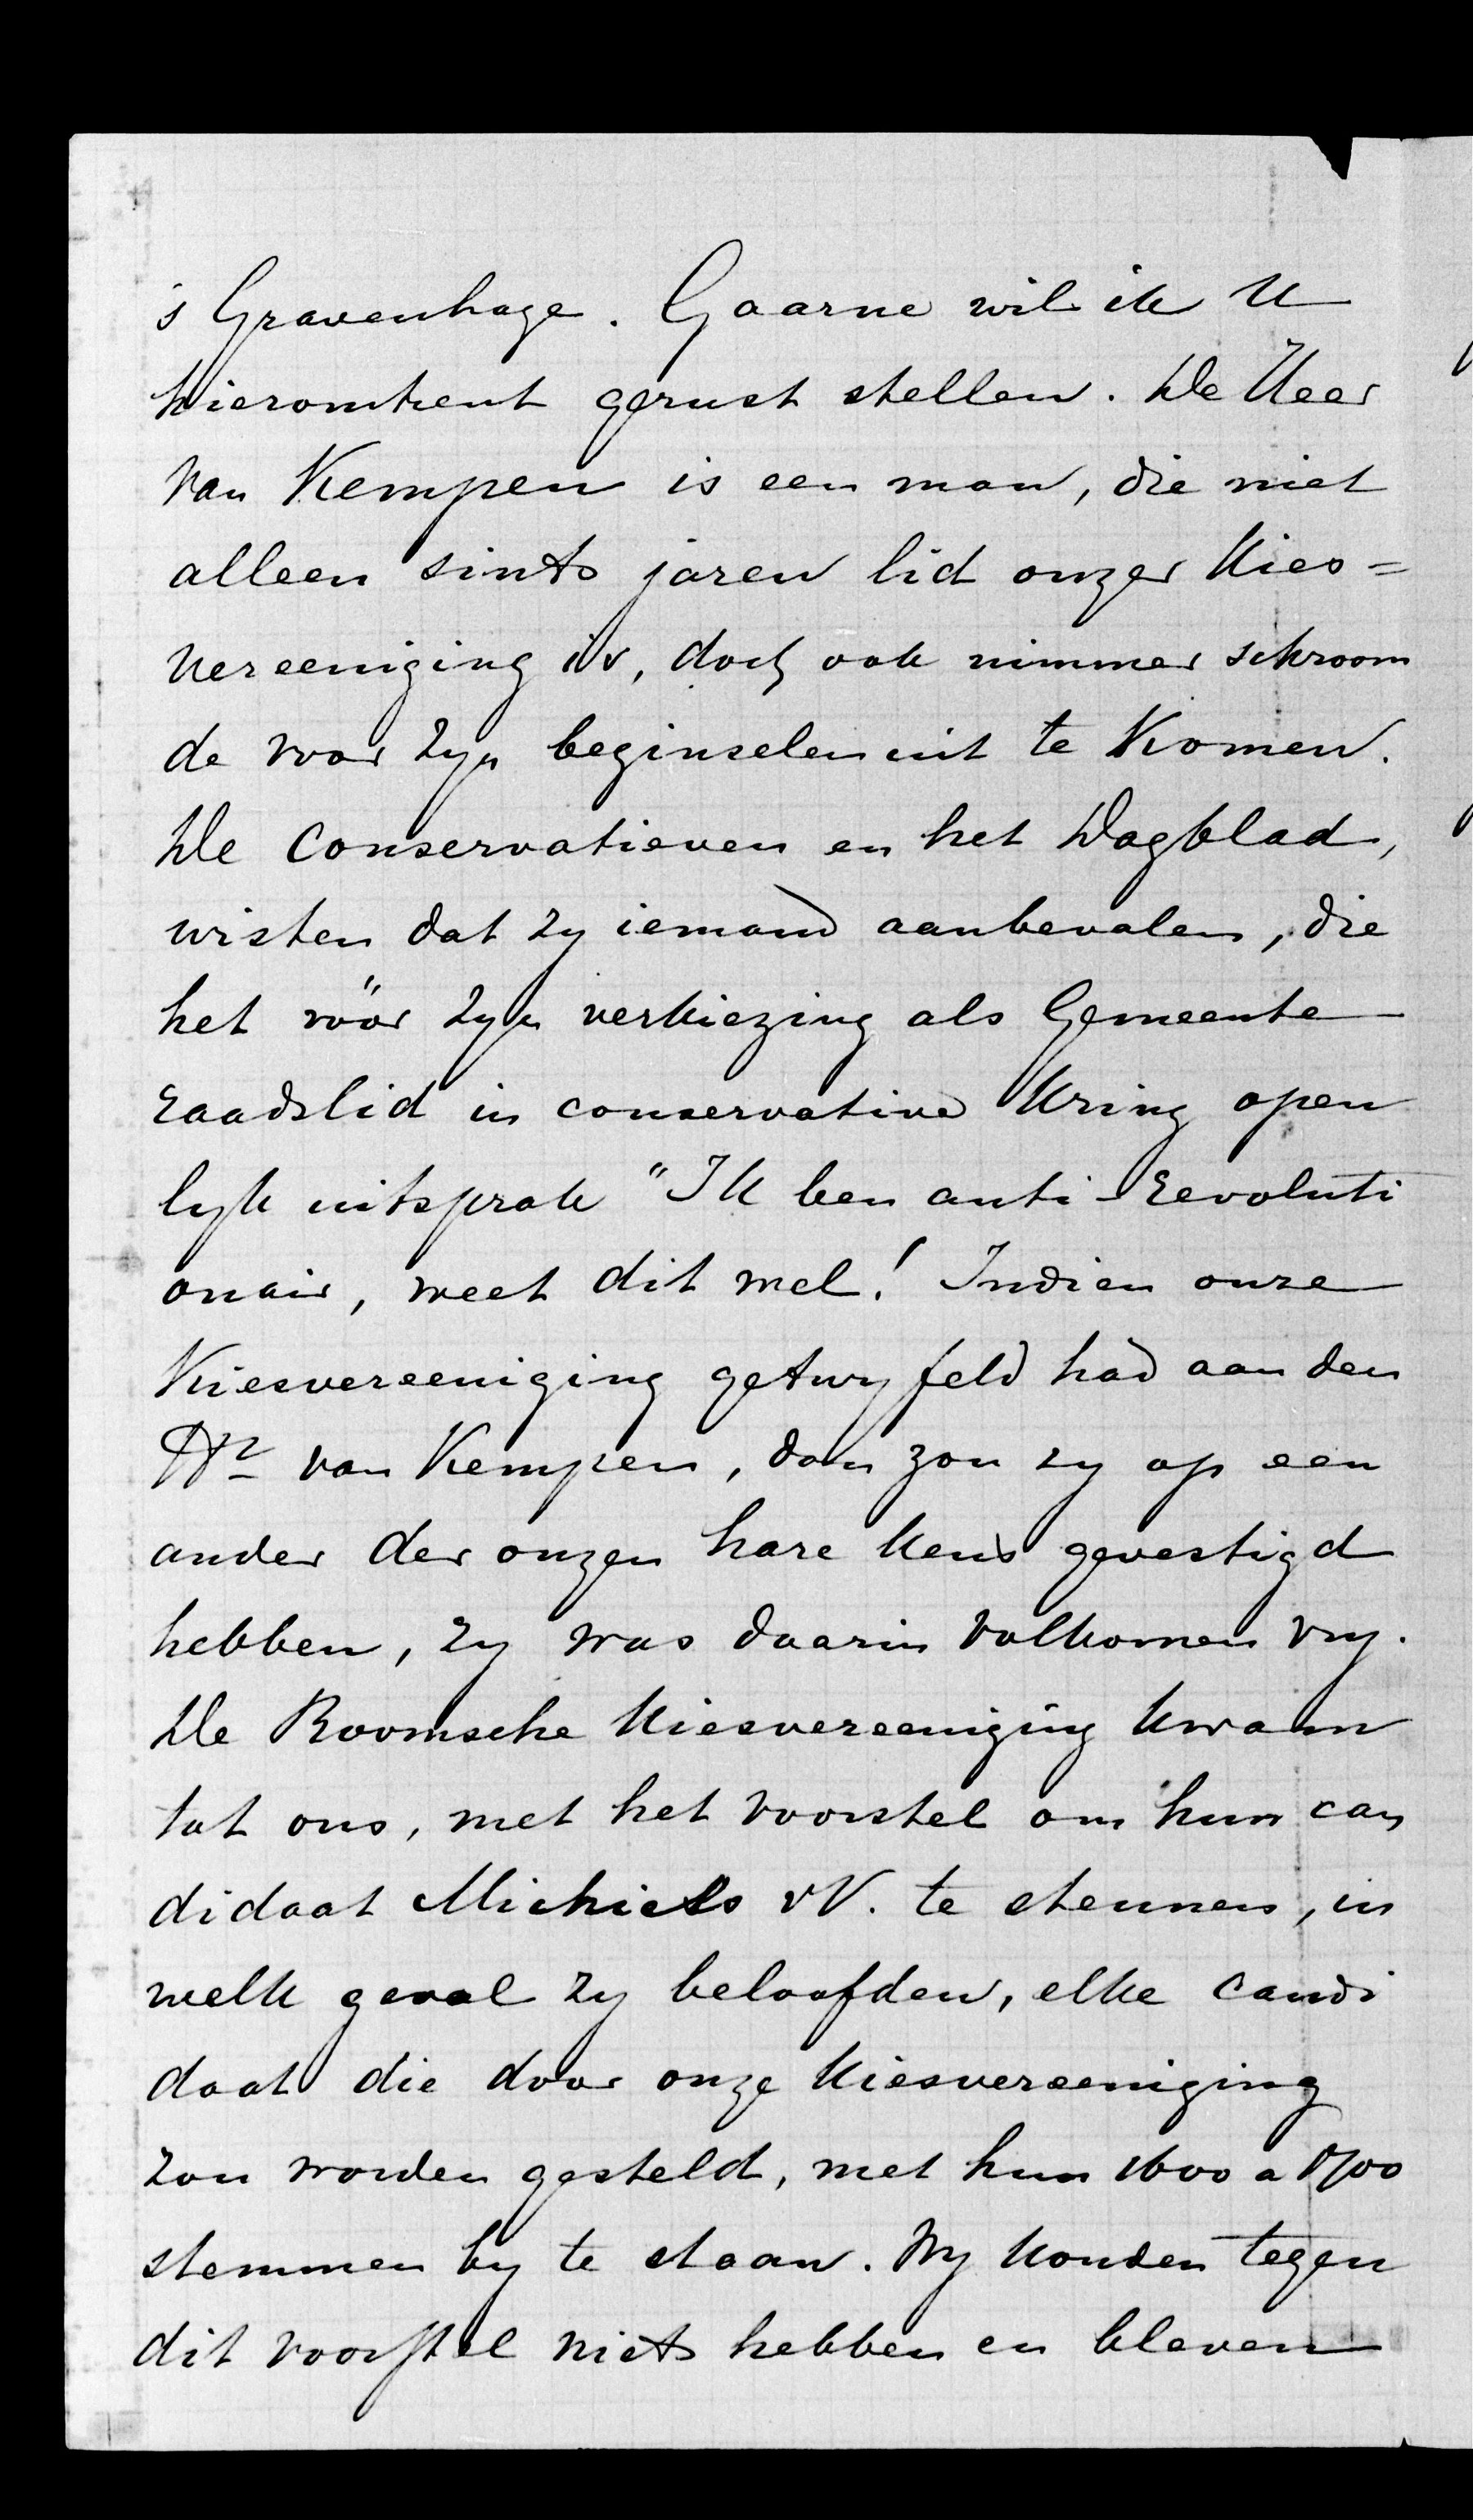 's Gravenhage. Gaarne wil ik U
hieromtrent gerust stellen. De Heer
van Kempen is een man, die niet
alleen sints jaren lid onzer Kies=
vereeniging is, doch ook nimmer schroom
de voor zyn beginselen uit te komen.
De Conservatieven en het Dagblad,
wisten dat zy iemand aanbevalen, die
het vöör zyn verkiezing als Gemeente
raadslid in conservative Kring open
lyk uitsprak "Ik ben anti-revoluti
onair, weet dit wel! Indien onze
Kiesvereeniging getwyfeld had aan den
Hr van Kempen, dan zou zy op een
ander der onzen hare keus gevestigd
hebben, zy was daarin volkomen vry.
De Roomsche Kiesvereeniging kwam
tot ons, met het voorstel om hun can
didaat Michiels v V. te steunen, in
welk geval zy beloofden, elke candi
daat die door onze Kiesvereeniging
zou worden gesteld, met hun 1600 a 1700
stemmen by te staan. Wy konden tegen
dit voorstel niets hebben en bleven